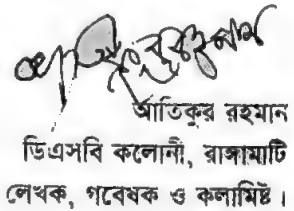 আতিকুর রহমান
ডিএসবি কলোনী, রাঙ্গামাটি
লেখক, গবেষক ও কলামিষ্ট।